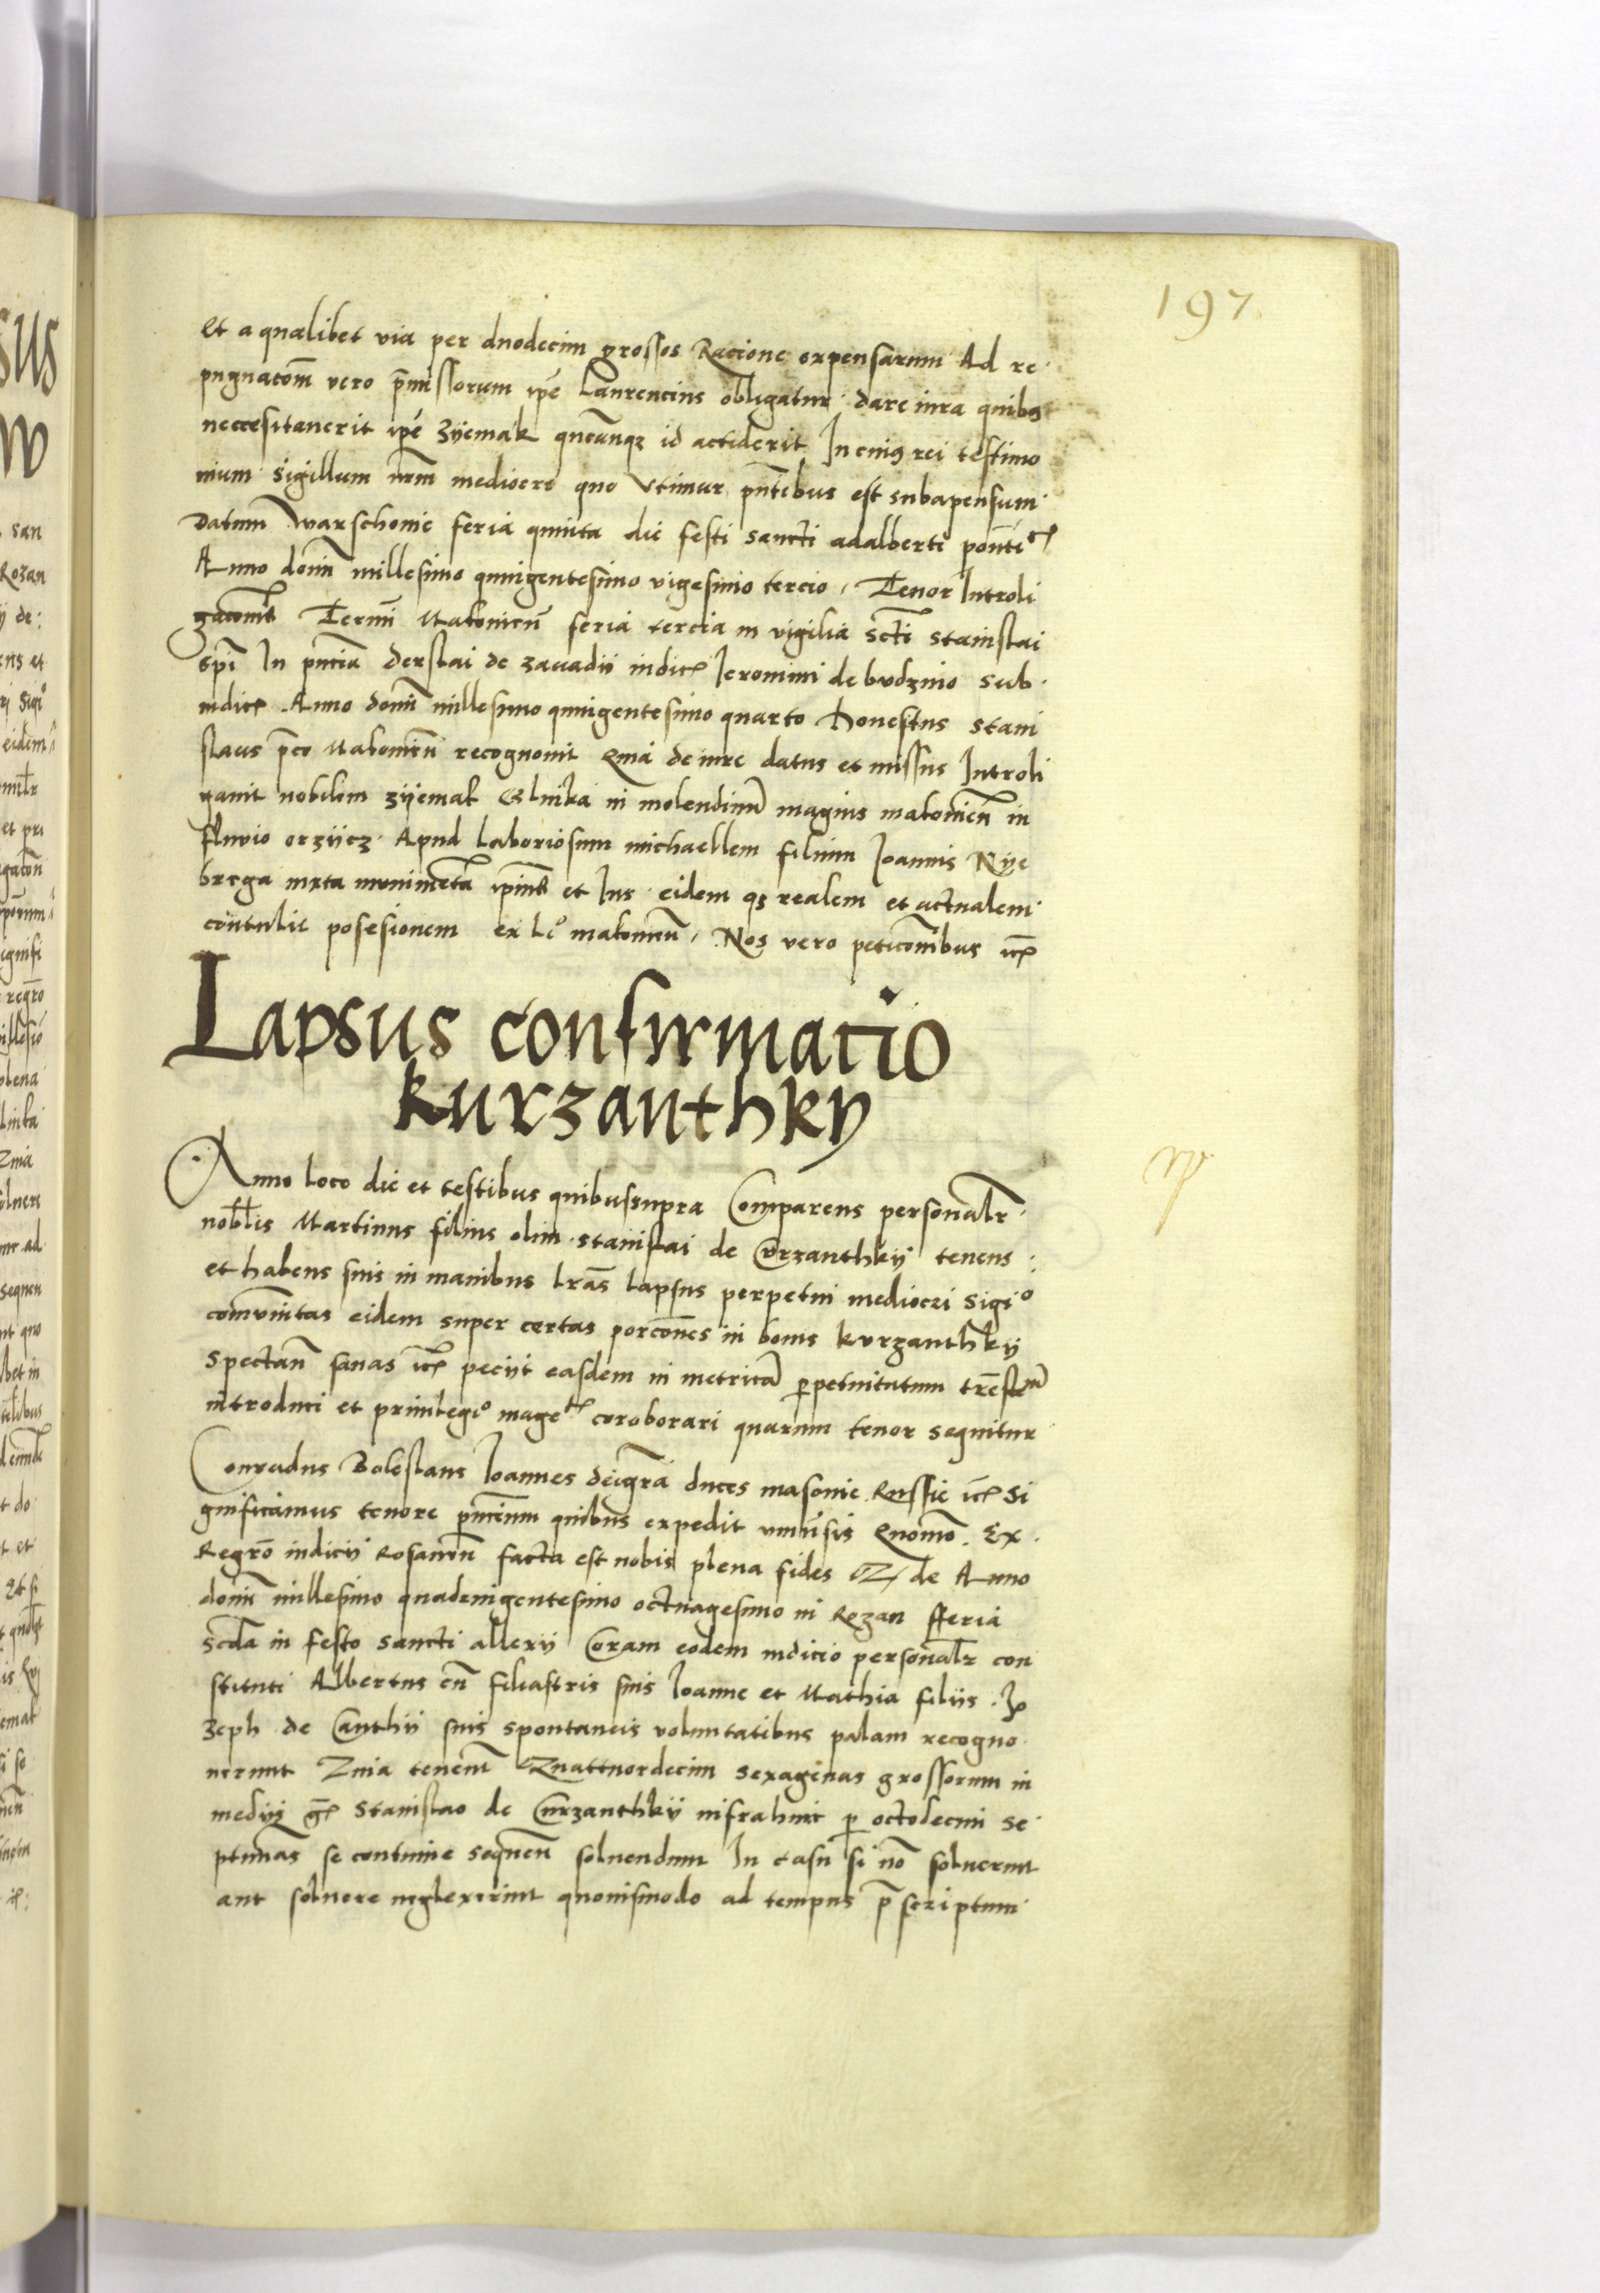 197
Et a qualibet via per duodecim grossos Racione expensarum Ad re
pugnacom̄ vero p̄missorum ip̄e Laurencius obligatur dare iura quibus
neccesitauerit ip̄e Zyemak qucunqz id acciderit In cuius rei testimo
nium sigillum nr̄m mediocre quo vtimur pn̄tibus est subapensum
Datum Warschouie feria quinta die festi sancti adalberti
Anno domī millesimo quingentesimo vigesimo tercio, Tenor Introli
gacionis Termī Makouień feria tercia in vigilia sctī stanislai
ep̄i In pn̄cia derslai de zavadii iudic̄ Ieronimi de budzino sub
iudic̄ Anno domī millesimo quingentesimo quarto Honestus stani
slaus p̄co Makouień recognouit Quia de iure datus et missus Introli
gauit nobilem zyemak Glinka in molendinū magnus makouień in
fluvio orzycz Apud laboriosum michaellem filium Joannis Nye
brega iuxta munimēta et Ius eidem qz realem et actualem
contulit posesionem ex makouień, Nos vero peticōnibus ec̄
Lapsus confirmatio
kurzanthky
Anno loco die et testibus quibussupra Comparens personalr̄
nobīlis Martinus filius olim stanislai de Curzanthky tenens
et habens suis in manibus lrās lapsus perpetui mediocri sigio
comunitas eidem super certas porcōnes in bonis kurzanthky
spectań sanas ec̄ peciit easdem in metricā perpetuitatum
introduci et priuilegio coroborari quarum tenor sequitur
Conradus Boleslaus Joannes deigrā duces masouie Russie ec̄ Si
gnificamus tenore pn̄cium quibus expedit vniūsis Quomō Ex
Regrō iudicij Rosanień facta est nobis plena fides Qz de Anno
domī millesimo quadringentesimo octuagesimo in Rozan fferia
scdā in festo sancti allexy Coram eodem iudicio personalr̄ con
stituti Albertus cū filiastris suis Joanne et Mathia filiis Jo
zeph de Canthii suis spontaneis voluntatibus palam recogno
uerunt Quia tenent Quattuordecim sexagenas grossorum in
mediis gr̄ Stanislao de Curzanthky infrahinc per octodecim se
ptimanas se continue sequeń soluendum In casu si nō soluerint
aut soluere neglexerint quouismodo ad tempus p̄scriptum